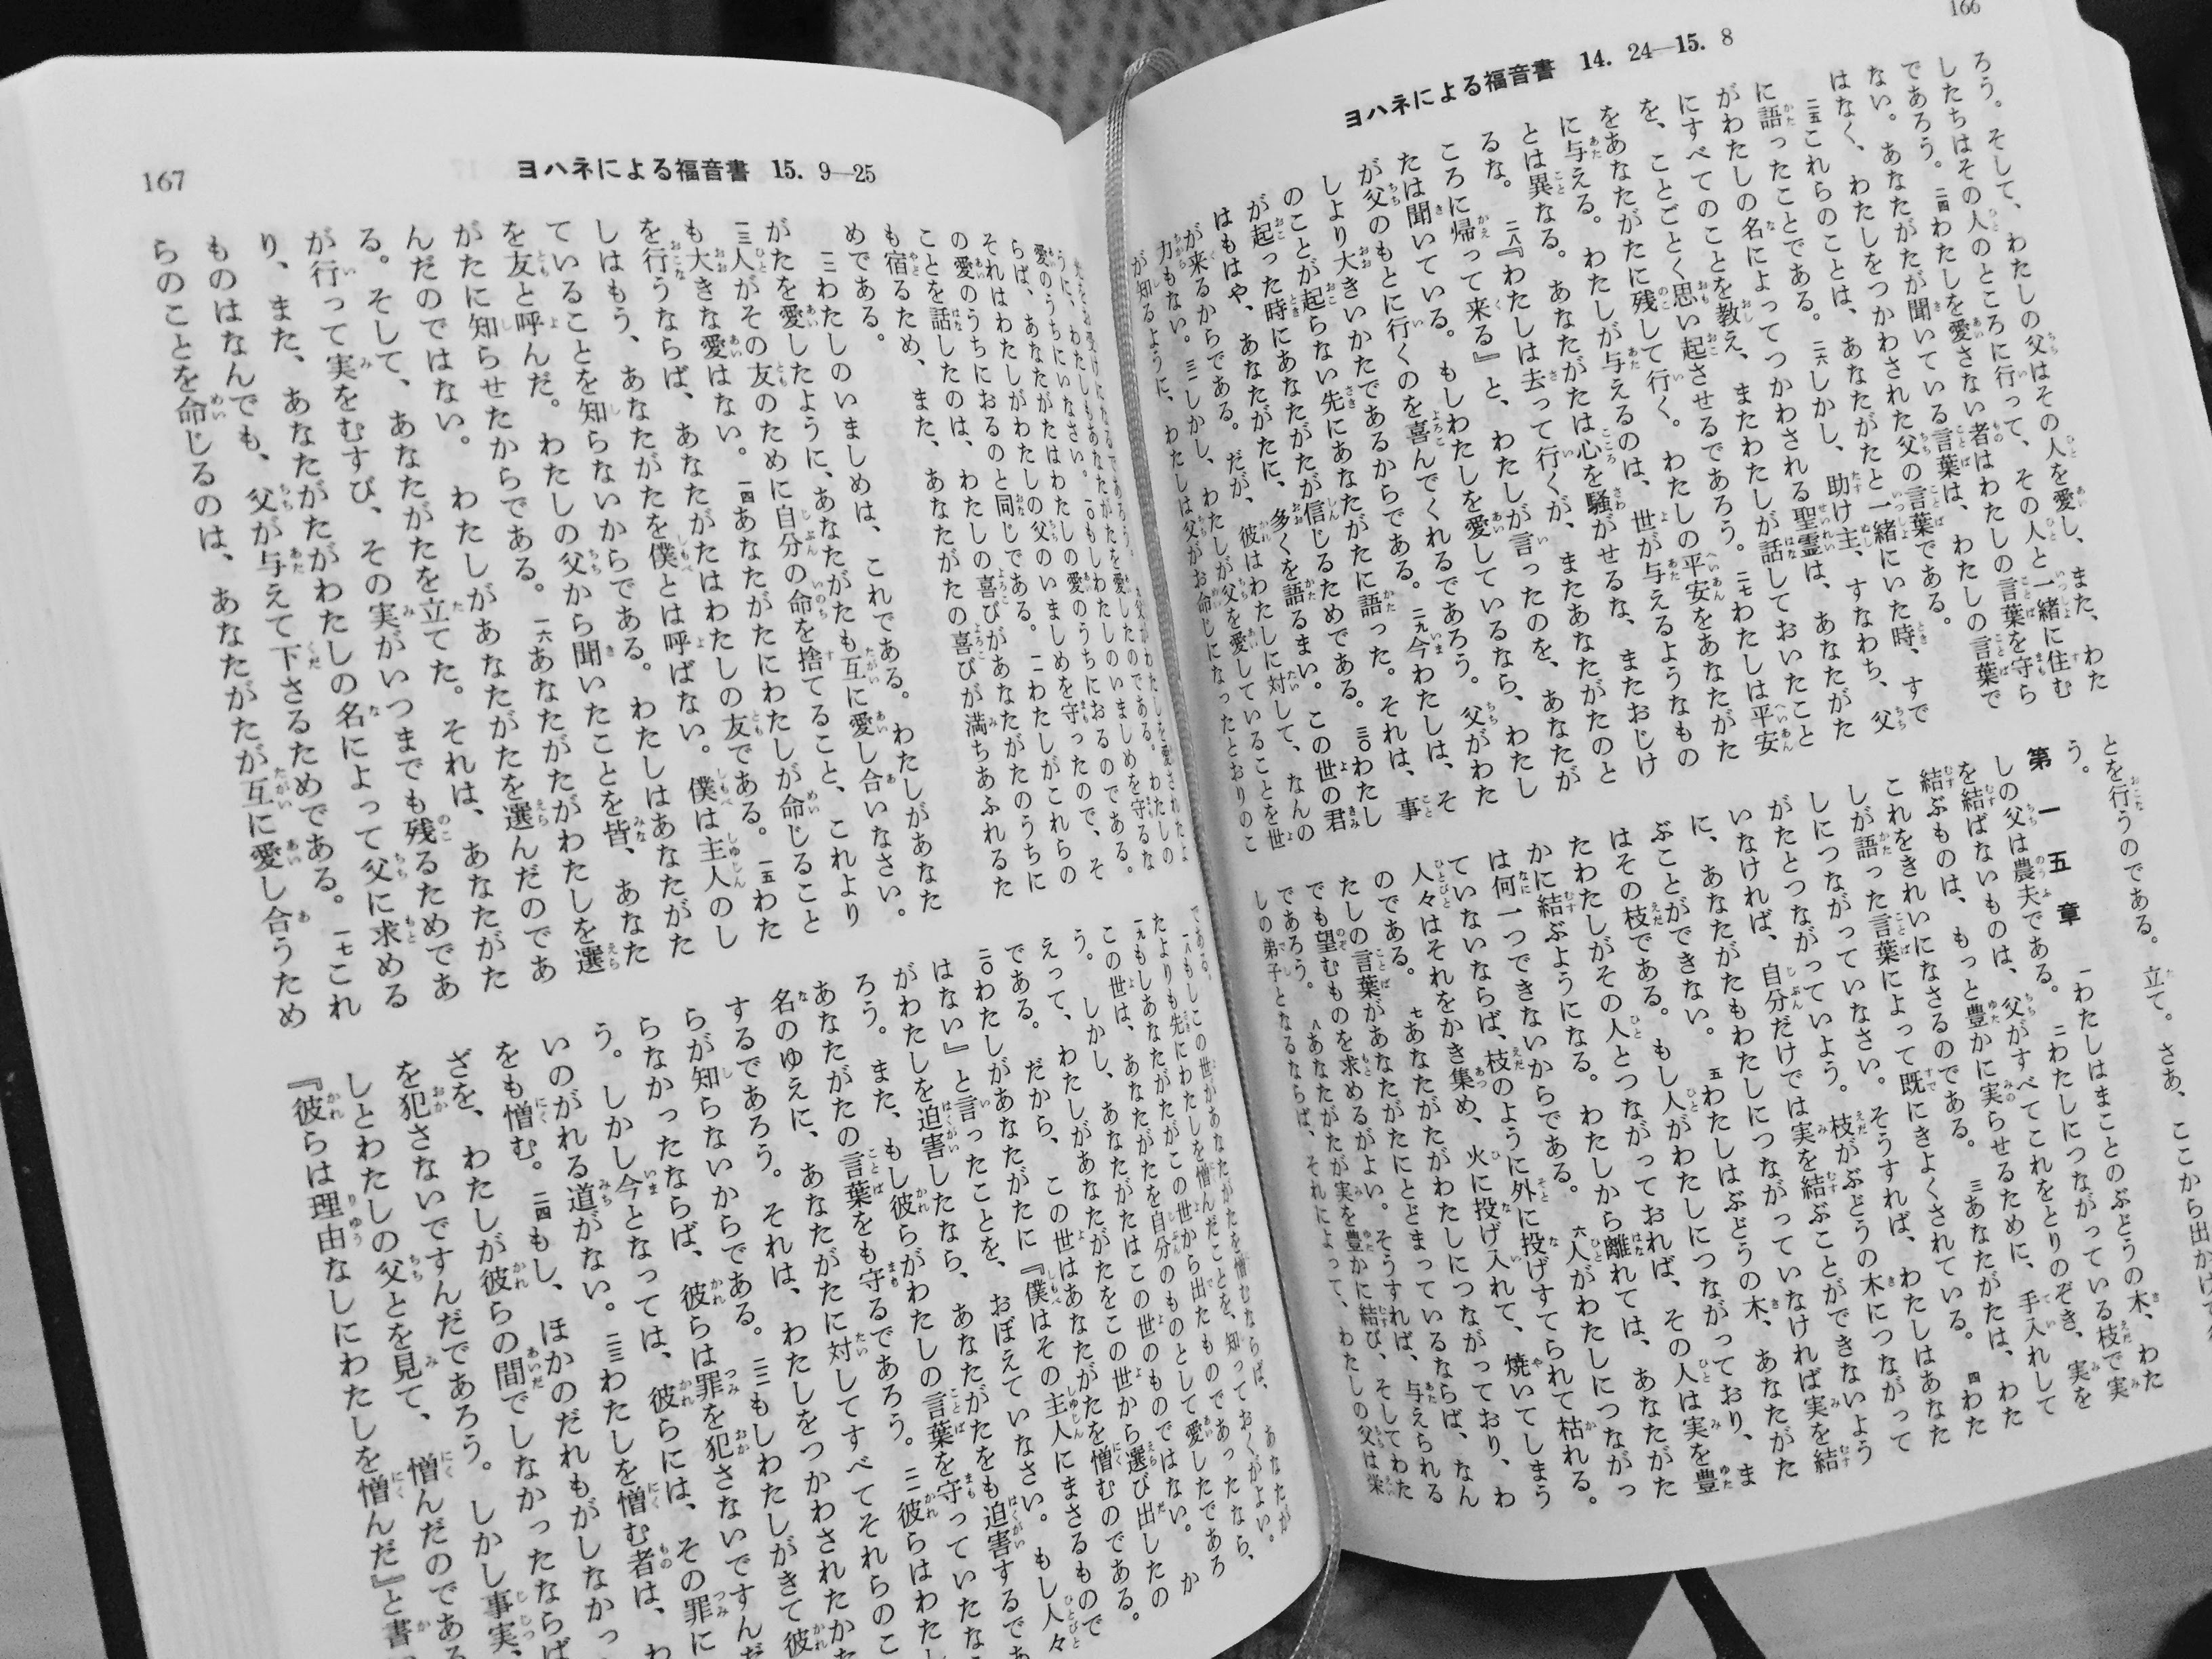 166
ヨハネによる福音書 14. 24—15. 8
ろう。そして、わたしの父はその人を愛し、また、わた
したちはその人のところに行って、その人と一緒に住む
であろう。二四わたしを愛さない者はわたしの言葉を守ら
ない。あなたがたが聞いている言葉は、わたしの言葉で
はなく、わたしをつかわされた父の言葉である。
二五これらのことは、あなたがたと一緒にいた時、すで
に語ったことである。二六しかし、助け主、すなわち、父
がわたしの名によってつかわされる聖霊は、あなたがた
にすべてのことを教え、またわたしが話しておいたこと
を、ことごとく思い起させるであろう。二七わたしは平安
をあなたがたに残して行く。わたしの平安をあなたがた
に与える。わたしが与えるのは、世が与えるようなもの
とは異なる。あなたがたは心を騒がせるな、またおじけ
るな。二八『わたしは去って行くが、またあなたがたのと
ころに帰って来る』と、わたしが言ったのを、あなたが
たは聞いている。もしわたしを愛しているなら、わたし
が父のもとに行くのを喜んでくれるであろう。父がわた
しより大きいかたであるからである。二九今わたしは、そ
のことが起らない先にあなたがたに語った。それは、事
が起った時にあなたがたが信じるためである。三〇わたし
はもはや、あなたがたに、多くを語るまい。この世の君
が来るからである。だが、彼はわたしに対して、なんの
力もない。三一しかし、わたしが父を愛していることを世
が知るように、わたしは父がお命じになったとおりのこ
とを行うのである。立て。さあ、ここから出かけて
う。
第一五章 一わたしはまことのぶどうの木、わた
しの父は農夫である。二わたしにつながっている枝で実
を結ばないものは、父がすべてこれをとりのぞき、実を
結ぶものは、もっと豊かに実らせるために、手入れして
これをきれいになさるのである。三あなたがたは、わた
しが語った言葉によって既にきよくされている。四わた
しにつながっていなさい。そうすれば、わたしはあなた
がたとつながっていよう。枝がぶどうの木につながって
いなければ、自分だけでは実を結ぶことができないよう
に、あなたがたもわたしにつながっていなければ実を結
ぶことができない。五わたしはぶどうの木、あなたがた
はその枝である。もし人がわたしにつながっており、ま
たわたしがその人とつながっておれば、その人は実を豊
かに結ぶようになる。わたしから離れては、あなたがた
は何一つできないからである。六人がわたしにつながっ
ていないならば、枝のように外に投げすてられて枯れる。
人々はそれをかき集め、火に投げ入れて、焼いてしまう
のである。七あなたがたがわたしにつながっており、わ
たしの言葉があなたがたにとどまっているならば、なん
でも望むものを求めるがよい。そうすれば、与えられる
であろう。八あなたがたが実を豊かに結び、そしてわた
しの弟子となるならば、それによって、わたしの父は栄
167
ヨハネによる福音書 15. 9—25
光をお受けになるであろう。九父がわたしを愛されたよ
うに、わたしもあなたがたを愛したのである。わたしの
愛のうちにいなさい。一〇もしわたしのいましめを守るな
らば、あなたがたはわたしの愛のうちにおるのである。
それはわたしがわたしの父のいましめを守ったので、そ
の愛のうちにおるのと同じである。一一わたしがこれらの
ことを話したのは、わたしの喜びがあなたがたのうちに
も宿るため、また、あなたがたの喜びが満ちあふれるた
めである。
一二わたしのいましめは、これである。わたしがあなた
がたを愛したように、あなたがたも互に愛し合いなさい。
一三人がその友のために自分の命を捨てること、これより
も大きな愛はない。一四あなたがたにわたしが命じること
を行うならば、あなたがたはわたしの友である。一五わた
しはもう、あなたがたを僕とは呼ばない。僕は主人のし
ていることを知らないからである。わたしはあなたがた
を友と呼んだ。わたしの父から聞いたことを皆、あなた
がたに知らせたからである。一六あなたがたがわたしを選
んだのではない。わたしがあなたがたを選んだのであ
る。そして、あなたがたを立てた。それは、あなたがた
が行って実をむすび、その実がいつまでも残るためであ
り、また、あなたがたがわたしの名によって父に求める
ものはなんでも、父が与えて下さるためである。一七これ
らのことを命じるのは、あなたがたが互に愛し合うため
である。
一八もしこの世があなたがたを憎むならば、あなたが
たよりも先にわたしを憎んだことを、知っておくがよい。
一九もしあなたがたがこの世から出たものであったなら、
この世は、あなたがたを自分のものとして愛したであろ
う。しかし、あなたがたはこの世のものではない。か
えって、わたしがあなたがたをこの世から選び出したの
である。だから、この世はあなたがたを憎むのである。
二〇わたしがあなたがたに『僕はその主人にまさるもので
はない』と言ったことを、おぼえていなさい。もし人々
がわたしを迫害したなら、あなたがたをも迫害するであ
ろう。また、もし彼らがわたしの言葉を守っていたな
あなたがたの言葉をも守るであろう。二一彼らはわたし
名のゆえに、あなたがたに対してすべてそれらのこ
するであろう。それは、わたしをつかわされたかた
らが知らないからである。二二もしわたしがきて彼
らなかったならば、彼らは罪を犯さないですんだ
う。しかし今となっては、彼らには、その罪に
いのがれる道がない。二三わたしを憎む者は、わ
をも憎む。二四もし、ほかのだれもがしなかっ
ざを、わたしが彼らの間でしなかったならば
を犯さないですんだであろう。しかし事実、
しとわたしの父とを見て、憎んだのである
『彼らは理由なしにわたしを憎んだ』と書